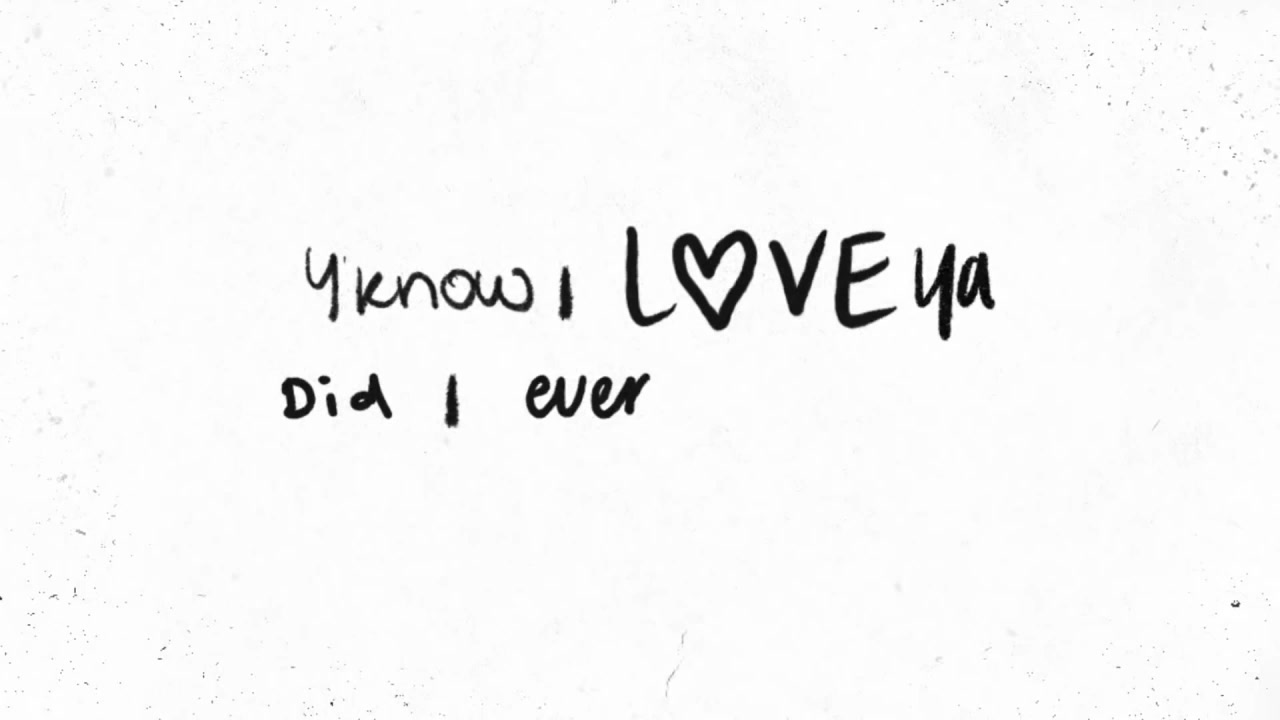 Y'know I L♡VE ya
Did I ever